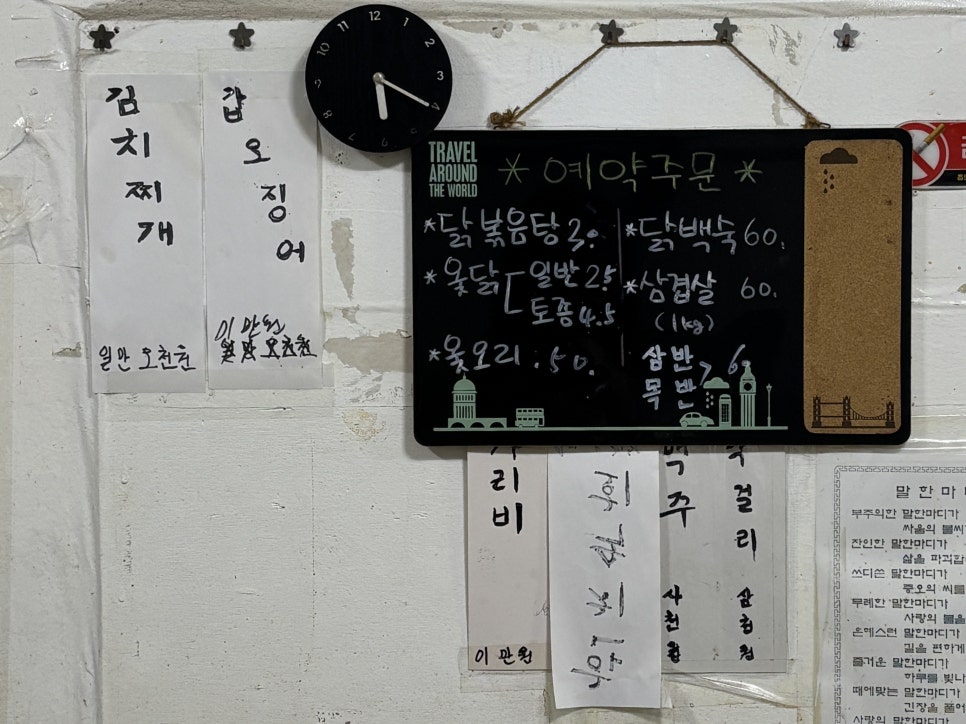 김
치
찌
개
일만 오천원
갑
오
징
어
이만원
12
1
2
3
4
8
9
10
11
TRAVEL
AROUND
THE WORLD
* 예약주문 *
*닭볶음탕 30
*옻닭
일반 2.5
토종 4.5
*옻오리 . 50.
*닭백숙 60.
*삼겹살 60.
(1kg)
삼반
목반
6
리
비
이만원
주
사천원
걸
리
삼천원
말 한 마
부주의한 말한마디가
싸움의 불씨
잔인한 말한마디가
삶을 파괴합
쓰디쓴 말한마디가
증오의 씨를
무례한 말한마디가
사랑의 불을
은혜스런 말한마디가
길을 편하게
즐거운 말한마디가
하루를 빛나
때에맞는 말한마디가
긴장을 풀어
사랑의 말한마디가